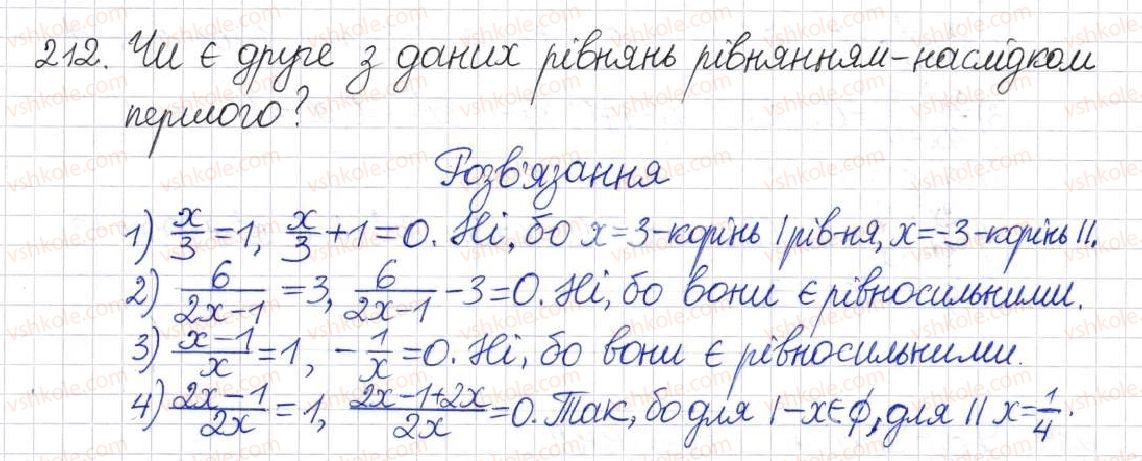 212. Чи є друге з даних рівнянь рівнянням-наслідком
першого?
Розв'язання
1) x/3 = 1, x/3 + 1 = 0. Ні, бо x = 3 - корінь I рів-ня, x = -3 - корінь II.
2) 6/(2x-1) = 3, 6/(2x-1) - 3 = 0. Ні, бо вони є рівносильними.
3) (x-1)/x = 1, -1/x = 0. Ні, бо вони є рівносильними.
4) (2x-1)/2x = 1, (2x-1+2x)/2x = 0. Так, бо для I - x ∈ ϕ, для II x = 1/4.